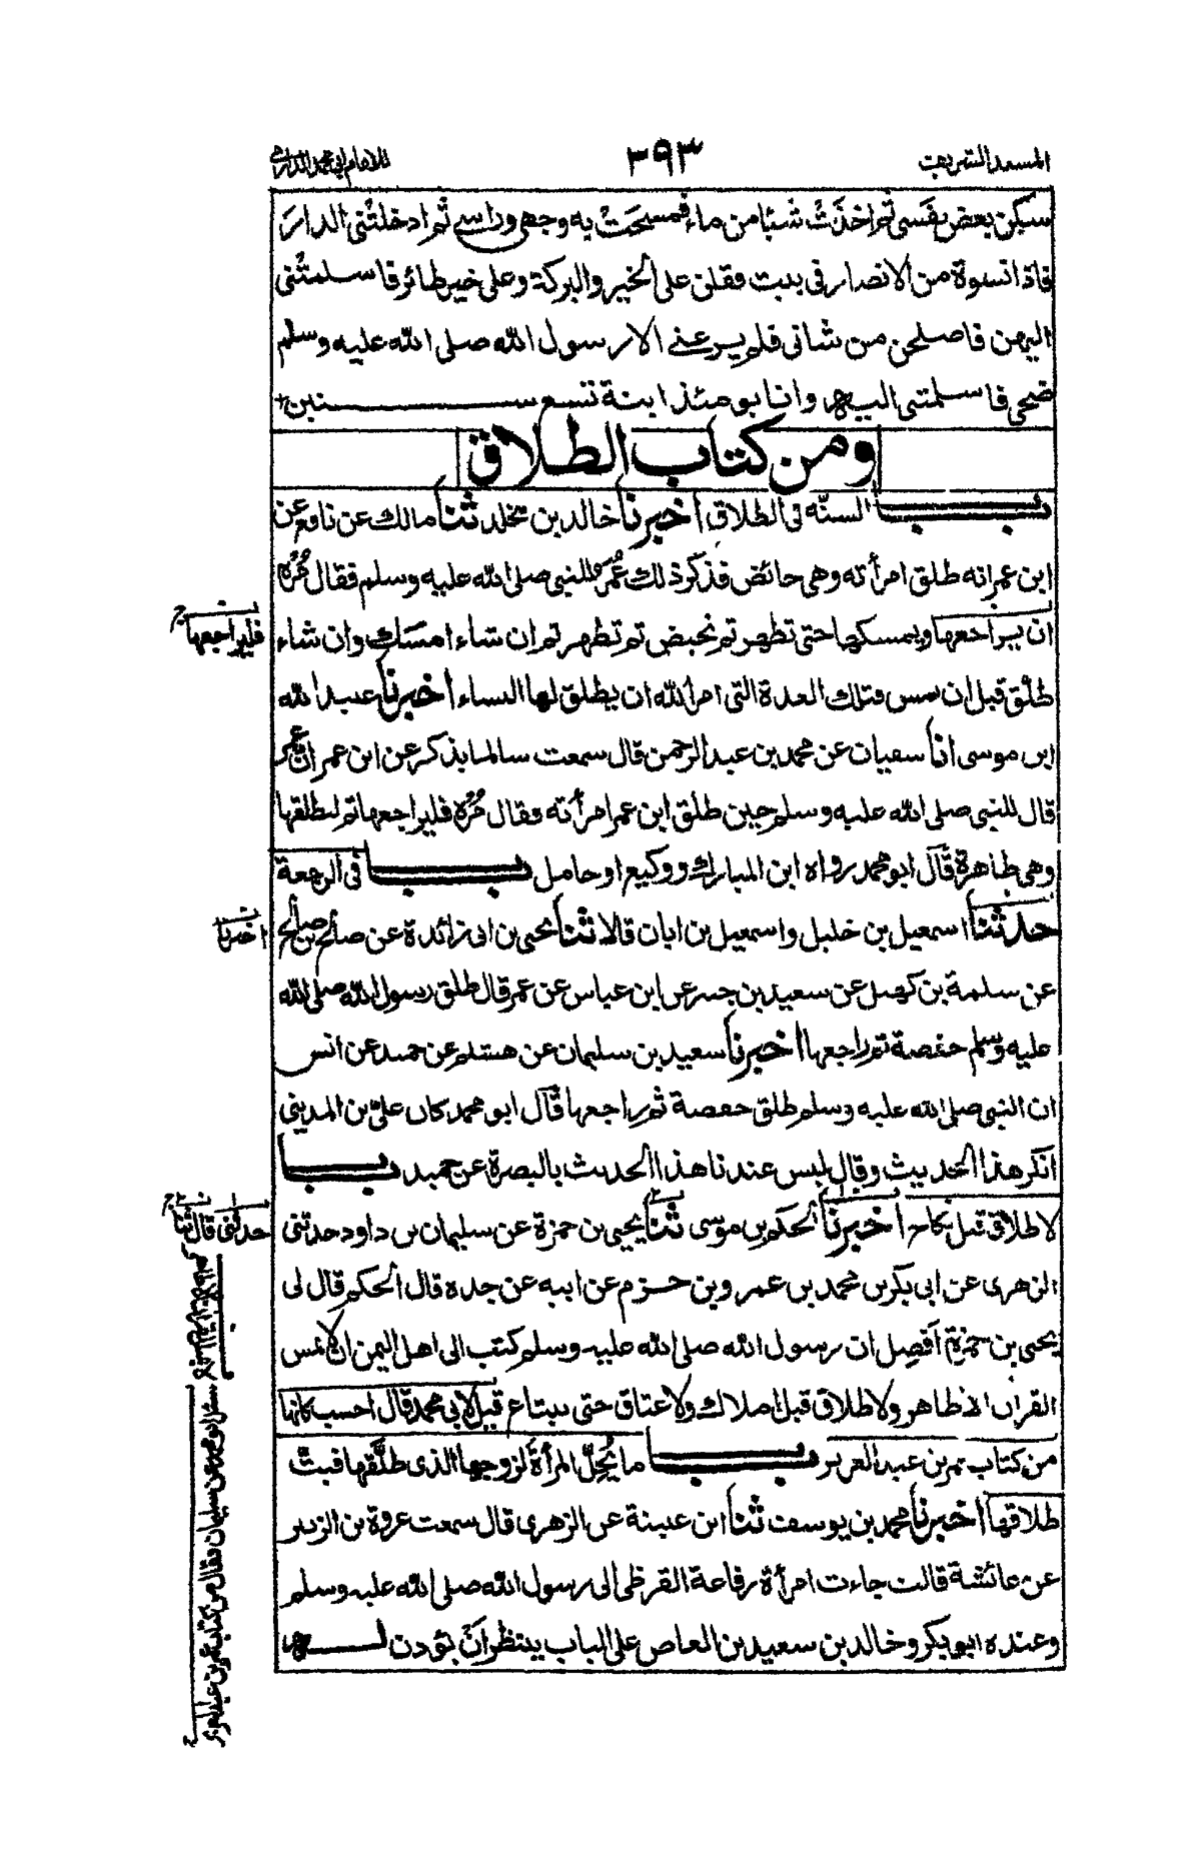 المسند الشريف ٣٩٣ للامام ابي محمد الدارمي
سكن بعض نفسي ثم اخذت شيئا من ماء فمسحت به وجهي وراسي ثم ادخلتني الدار
فاذا نسوة من الانصار في بيت فقلن على الخير والبركة وعلى خير طائر فاسلمتني
اليهن فاصلحن من شاني فلم يرعني الا رسول الله صلى الله عليه وسلم
ضحى فاسلمتني اليه وانا يومئذ ابنة تسع سنين
ومن كتاب الطلاق
باب السنة في الطلاق اخبرنا خالد بن مخلد ثنا مالك عن نافع عن
ابن عمر انه طلق امرأته وهي حائض فذكر ذلك عُمر للنبي صلى الله عليه وسلم فقال مُرْه
ان يراجعها ويمسكها حتى تطهر ثم تحيض ثم تطهر ثم ان شاء امسك وان شاء
فليراجعها
طلق قبل ان يمس فتلك العدة التي امر الله ان يطلق لها النساء اخبرنا عبيد الله
ابن موسى انا سفيان عن محمد بن عبد الرحمن قال سمعت سالما يذكر عن ابن عمر ان عمر
قال للنبي صلى الله عليه وسلم حين طلق ابن عمر امرأته فقال مُرْه فليراجعها ثم ليطلقها
وهي طاهرة قال ابو محمد رواه ابن المبارك ووكيع او حامل باب في الرجعة
حدثنا اسمعيل بن خليل واسمعيل بن ابان قالا ثنا يحيى بن ابي زائدة عن صالح بن صالح
اخبرنا
عن سلمة بن كهيل عن سعيد بن جبير عن ابن عباس عن عمر قال طلق رسول الله صلى الله
عليه وسلم حفصة ثم راجعها اخبرنا سعيد بن سليمان عن هشيم عن حميد عن انس
ان النبي صلى الله عليه وسلم طلق حفصة ثم راجعها قال ابو محمد كان علي بن المديني
انكر هذا الحديث وقال ليس عندنا هذا الحديث بالبصرة عن حميد باب
لا طلاق قبل نكاح اخبرنا الحكم بن موسى ثنا يحيى بن حمزة عن سليمان بن داود حدثني
حدثني قال ثنا
الزهري عن ابي بكر بن محمد بن عمرو بن حزم عن ابيه عن جده قال الحكم قال لي
يحيى بن حمزة أفصل ان رسول الله صلى الله عليه وسلم كتب الى اهل اليمن ان لا يمس
القران الا طاهر ولا طلاق قبل املاك ولا عتاق حتى يبتاع قيل لابي محمد قال احسب كانها
من كتاب عمر بن عبد العزيز باب ما يُحِلّ المرأة لزوجها الذي طلّقها فبتّ
طلاقها اخبرنا محمد بن يوسف ثنا ابن عيينة عن الزهري قال سمعت عروة بن الزبير
عن عائشة قالت جاءت امرأة رفاعة القرظي الى رسول الله صلى الله عليه وسلم
وعنده ابو بكر وخالد بن سعيد بن العاص على الباب ينتظر ان يؤذن له
سئل ابو محمد عن سليمان فقال من كتاب عمر بن عبد العزيز